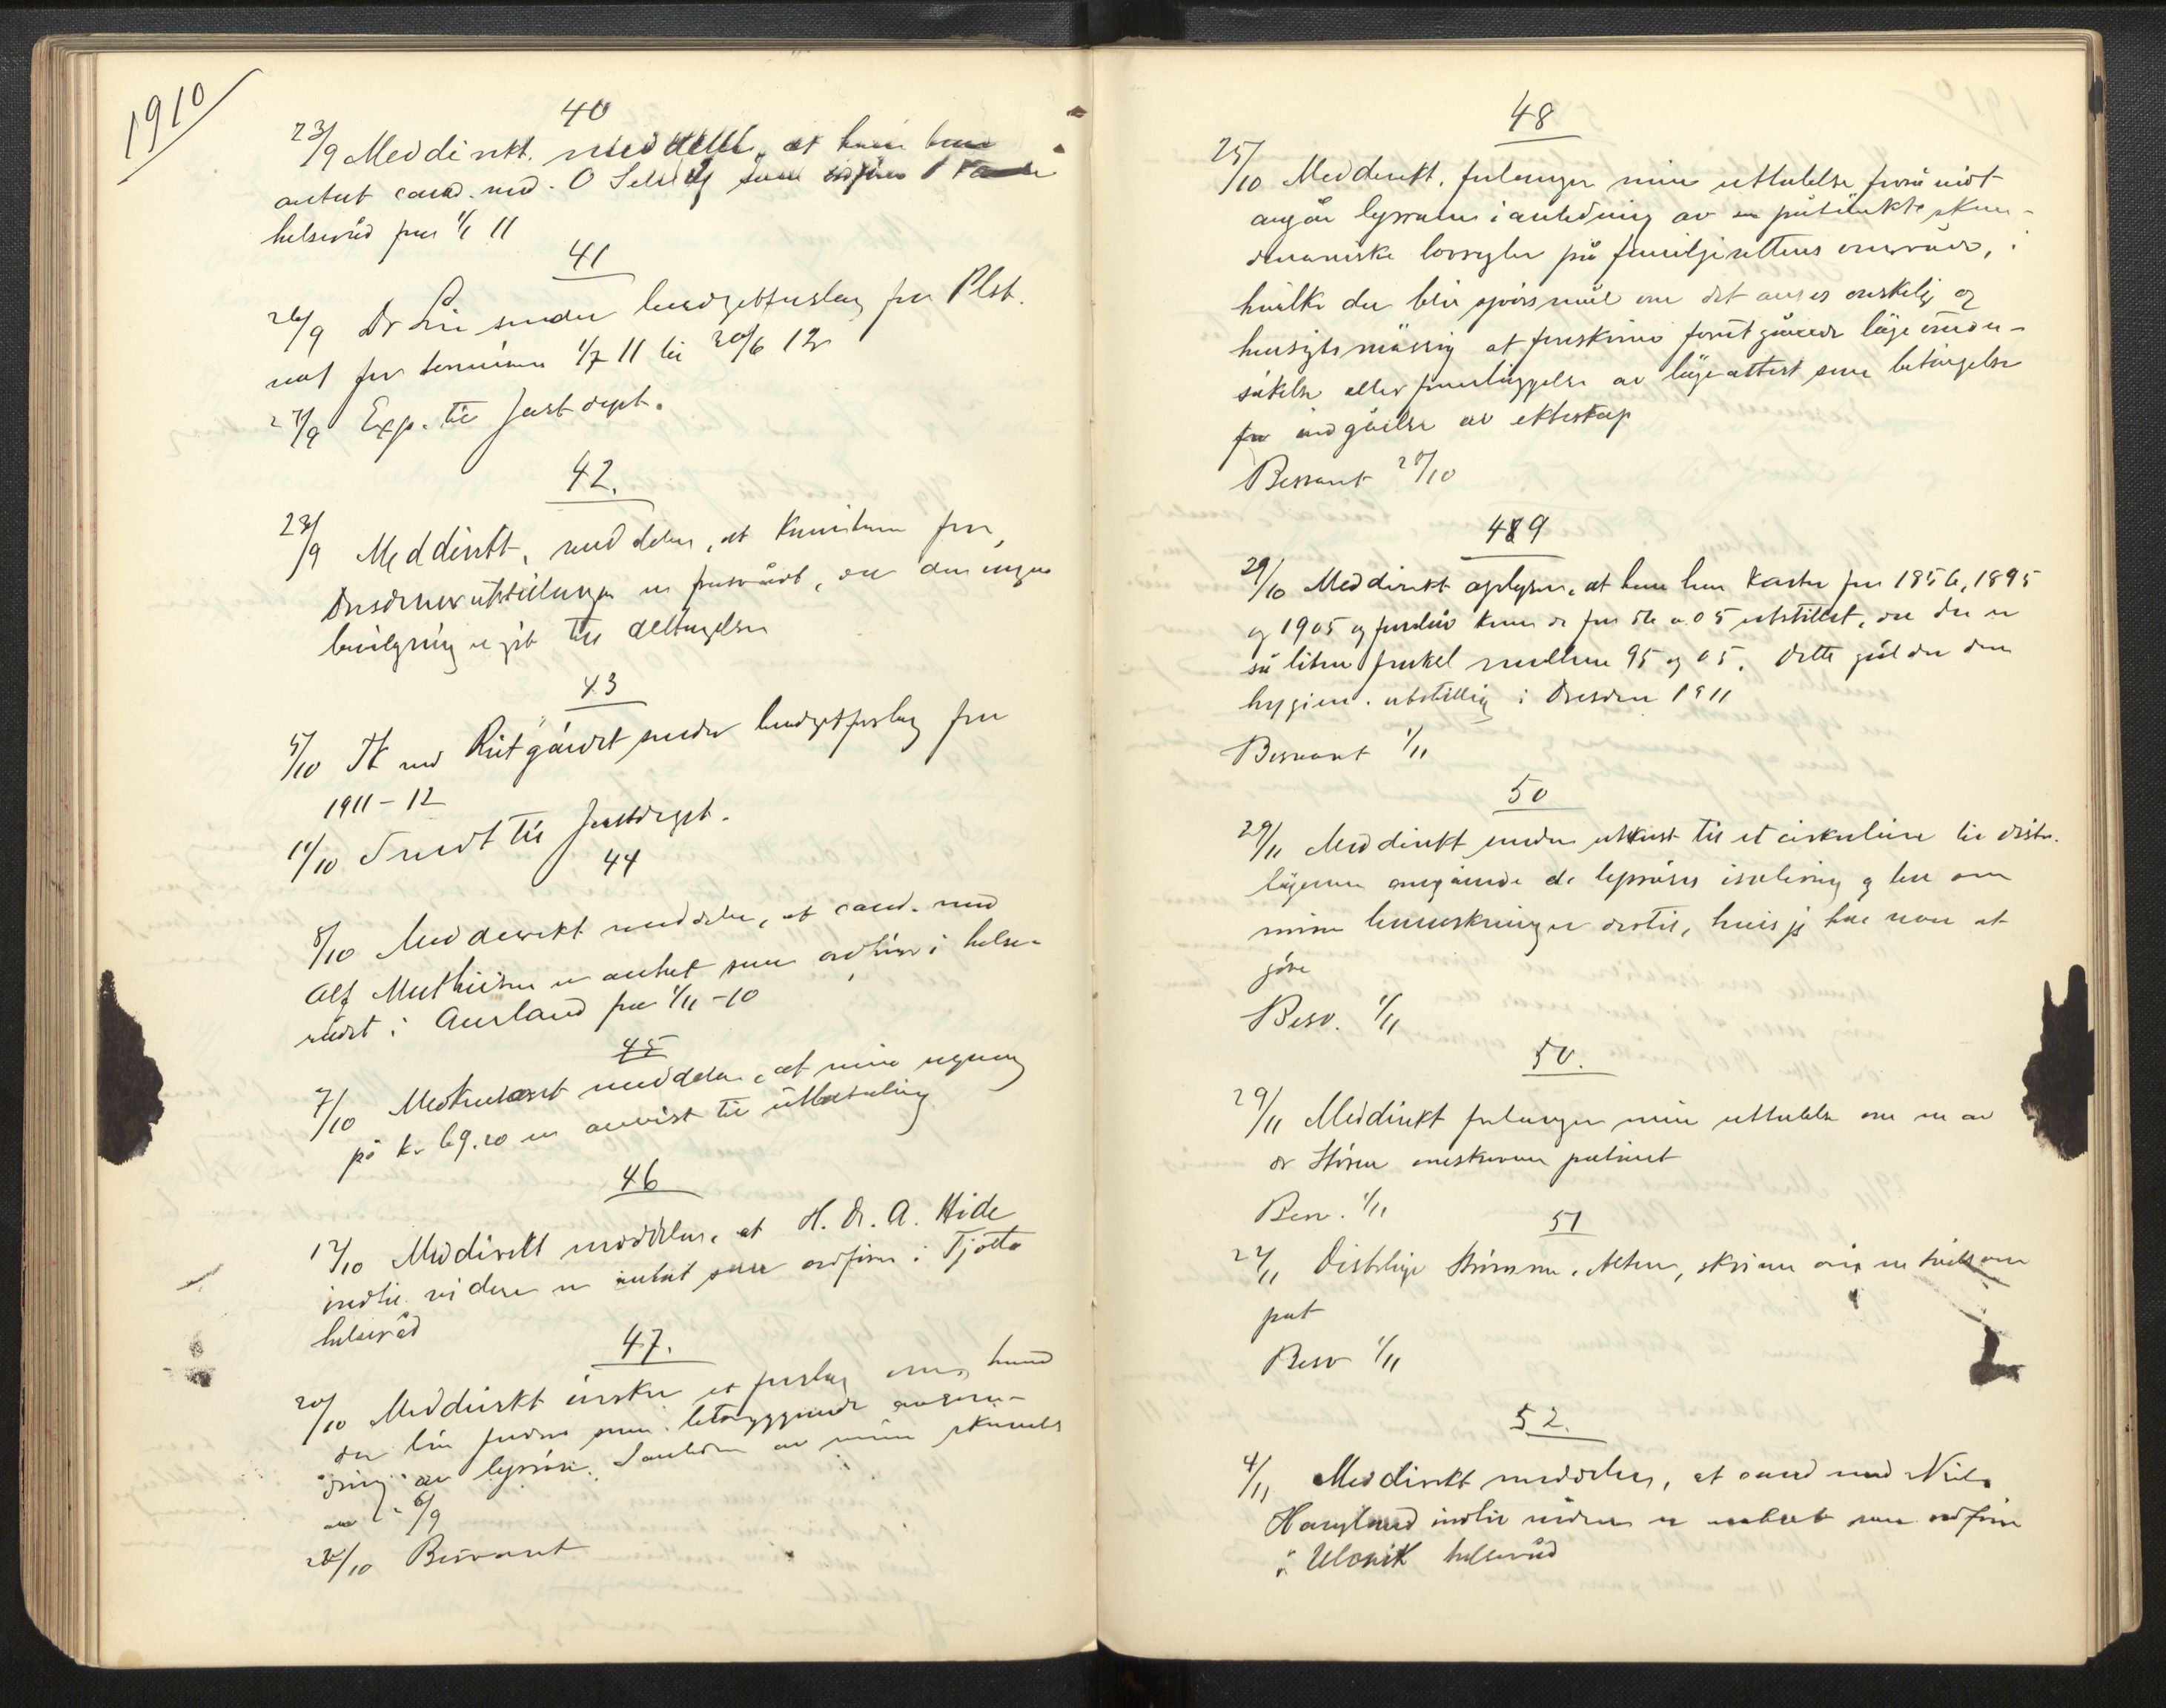 1910
40
23/9 Meddirekt. meddeler, at han har
antat cand. med. O Selsag som ordfører i
helseråd fra 1/1 11
41
26/9 Dr Lie sender budgetforslag for Plst.
nat for terminen 1/7 11 til 30/6 12
27/9 Exp. til Justdept.
42.
23/9 Meddirkt. meddeler, at komiteen for
Dresdnerutstillingen er forsvundt, da der ingen
bevilgning er git til deltagelsen
43
5/10 It ved Reitgjærdet sender budgetforslag for
1911-12
11/10 Sendt til Justdept.
44
8/10 Meddirekt meddeler, at cand. med
Alf Mathiesen er antat som ordfører i helse-
rådet i Aurland fra 1/11 -10
45
7/10 Meddeler, at min regning
på kr 69.20 er anvist til utbetaling
46
12/10 Meddirekt meddeler, at H. Dr. A. Hide
indtil videre er antat som ordfører i Tjøtta
helseråd
47.
20/10 Meddirkt ønsker et forslag om, hvad
der bør foretas som betryggende
av lepröse. av min skrivelse
av 6/9
Besvart
48
25/10 Meddirekt. forlanger min uttalelse forsåvidt
angår lepraen i anledning av en påtænkte skan-
dinaviske lovregler på familjerettens område, i
hvilke der blir spörsmål om det anses önskelig og
hensigtsmässig at foreskrive forutgående lägeundersö-
kelse eller fremläggelse av lägeattest som betingelse
for indgåelse av ekteskap
Besvart 27/10
49
29/10 Meddirekt oplyser, at han har karter for 1856, 1895
og 1905 og foreslår kun de for 56 og 05 utstillet, da der er
så liten forskel mellem 95 og 05. Dette gjælder den
hygien. utstilling i Dresden 1911
Besvart 1/11
50
29/11 Meddirekt sender utkast til et cirkulære til distr.
lägerne angående de leprøses isolering og ber om
mine bemerkninger dertil, hvis jeg har noen at
gjøre
Besv. 1/11
50.
29/11 Meddirekt forlanger min uttalelse om en av
dr Stören omskreven patient
Besv. 1/11
51
Distrläge Stören, Alten, skriver om en
pat
Besv 1/11
52.
4/11 Meddirekt meddeler, at cand med Nils
Haugland indtil videre er antat som ordfører
i Ulvik helseråd